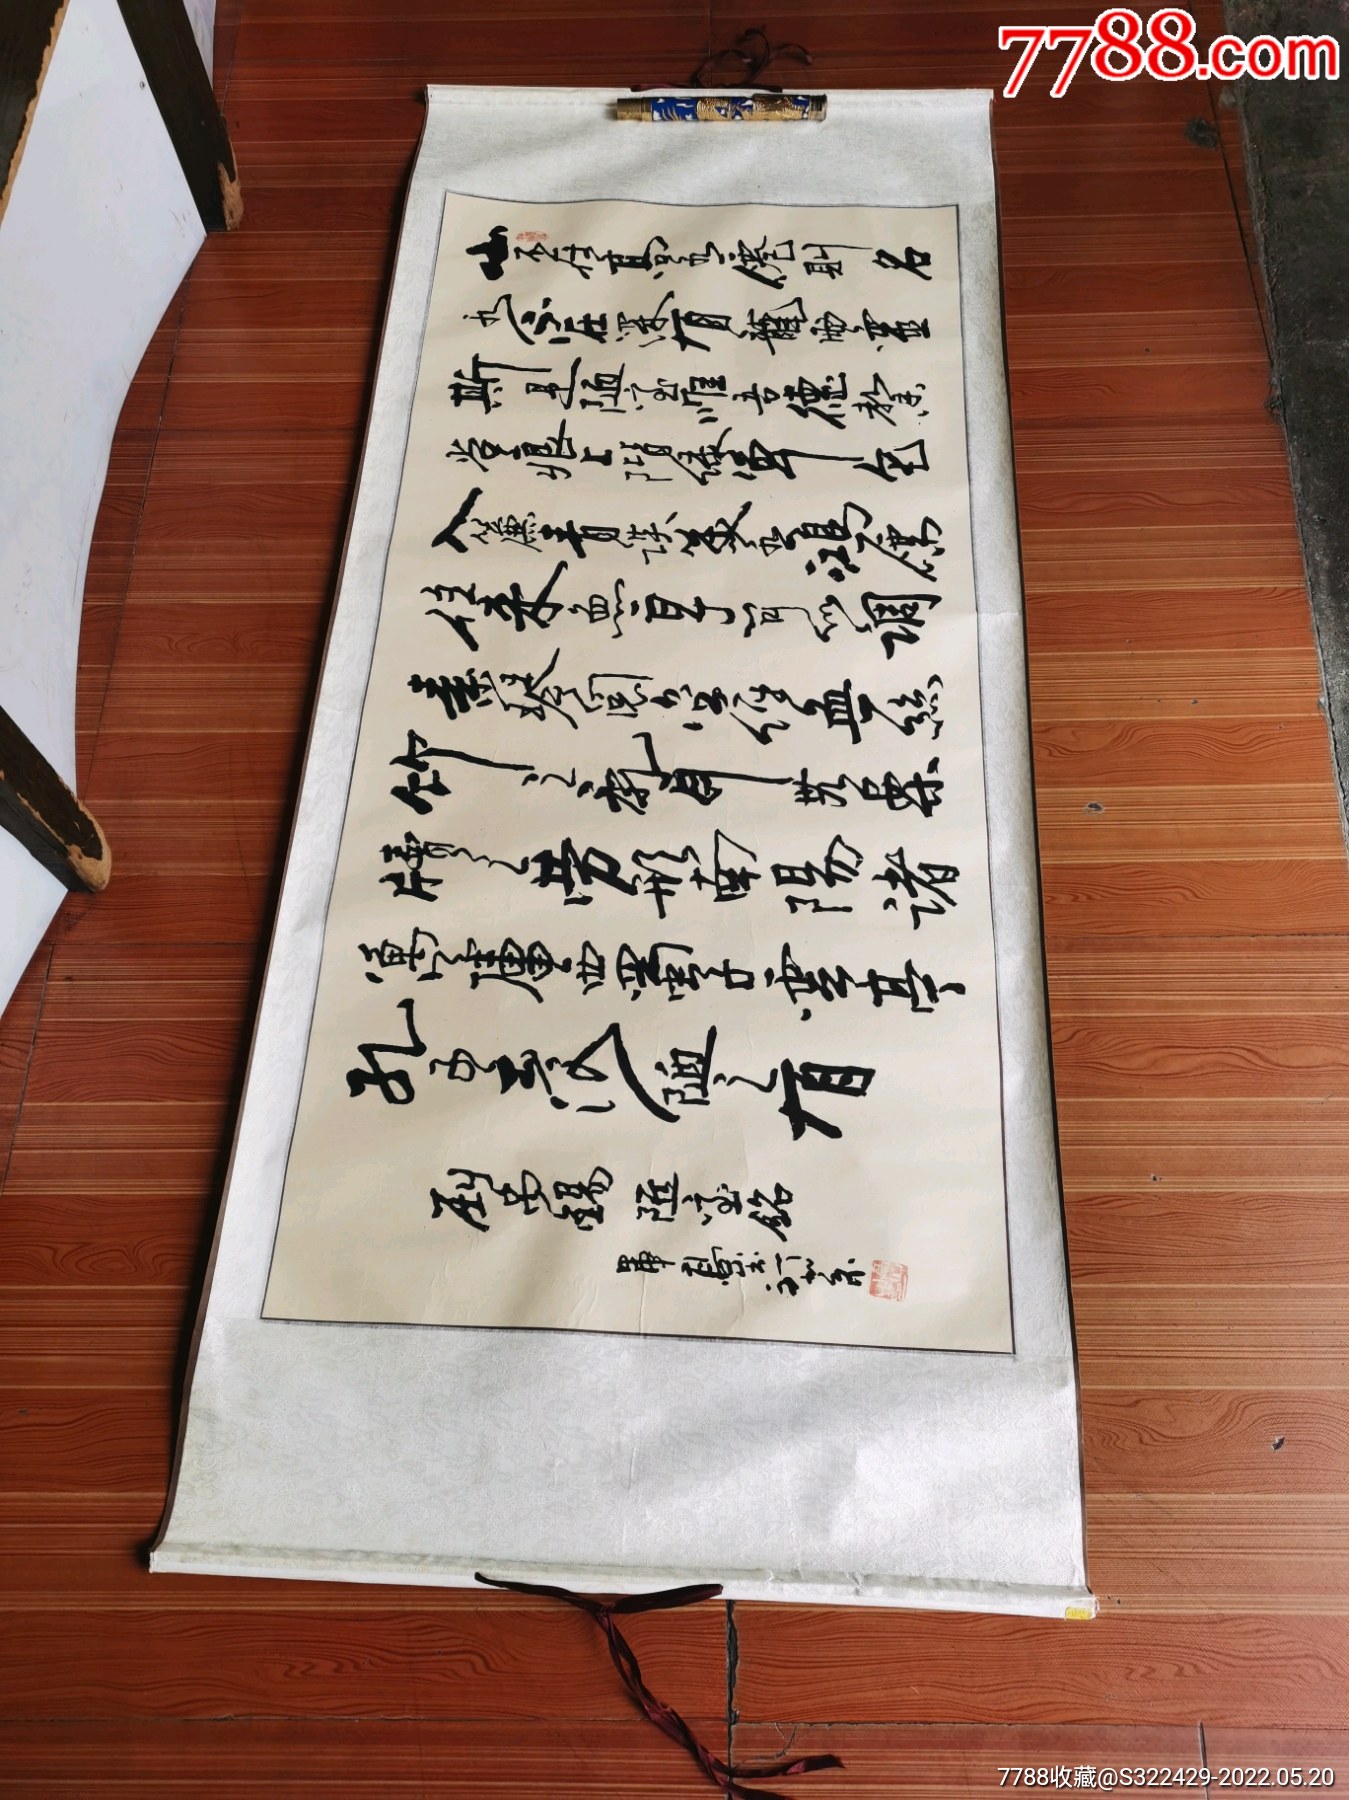 山不在高有僊則名
水不在深有龍則靈
斯是陋室惟吾德馨
苔痕上階綠草色
入簾青談笑有鴻儒
往來無白丁可以調
素琴閱金經無絲
竹之亂耳無案
牘之勞形南陽諸
葛廬西蜀子雲亭
孔子云何陋之有
劉禹錫陋室銘
7788.com
7788收藏@S322429-2022.05.20